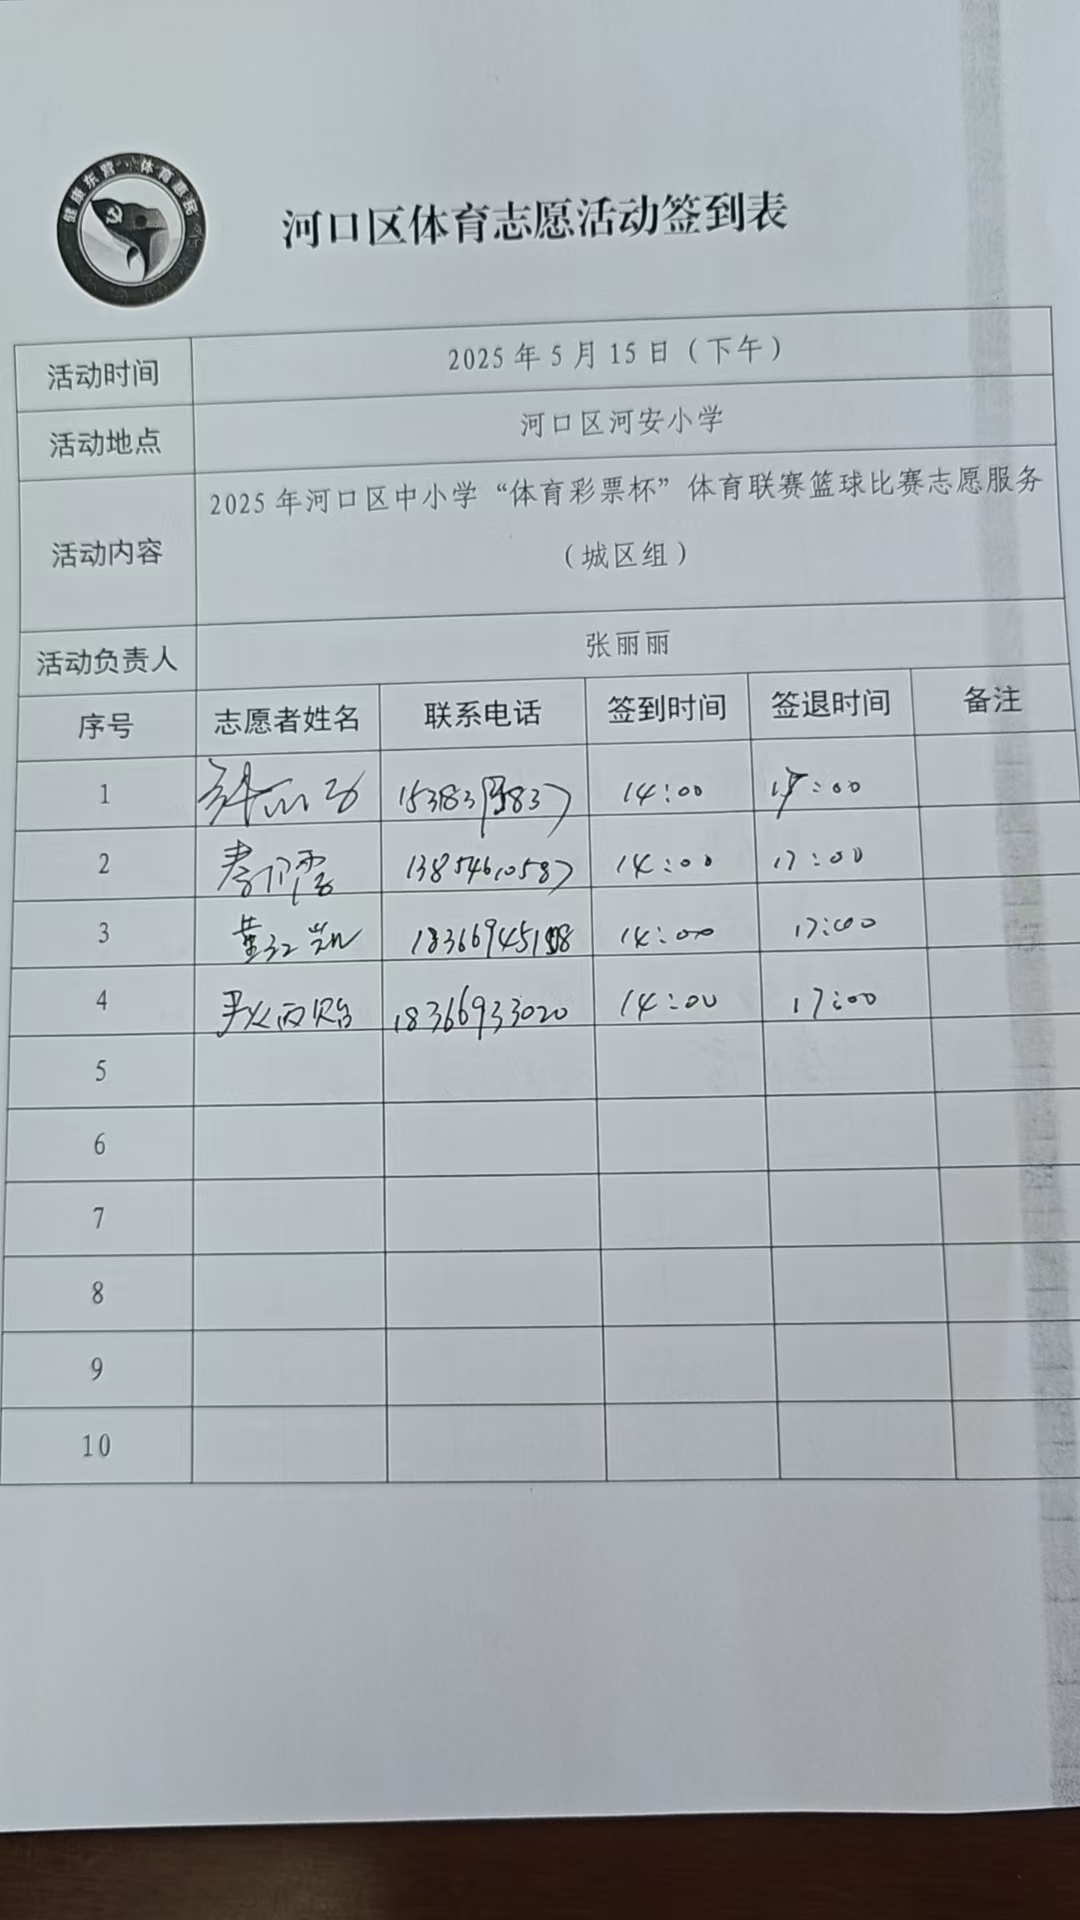 健康东营 体育惠民
河口区体育志愿活动签到表
活动时间 2025年5月15日（下午）
活动地点 河口区河安小学
活动内容 2025年河口区中小学“体育彩票杯”体育联赛篮球比赛志愿服务
（城区组）
活动负责人 张丽丽
序号 志愿者姓名 联系电话 签到时间 签退时间 备注
1 14:00 17:00
2 13854610587 14:00 17:00
3 14:00 17:00
4 18366933020 14:00 17:00
5
6
7
8
9
10